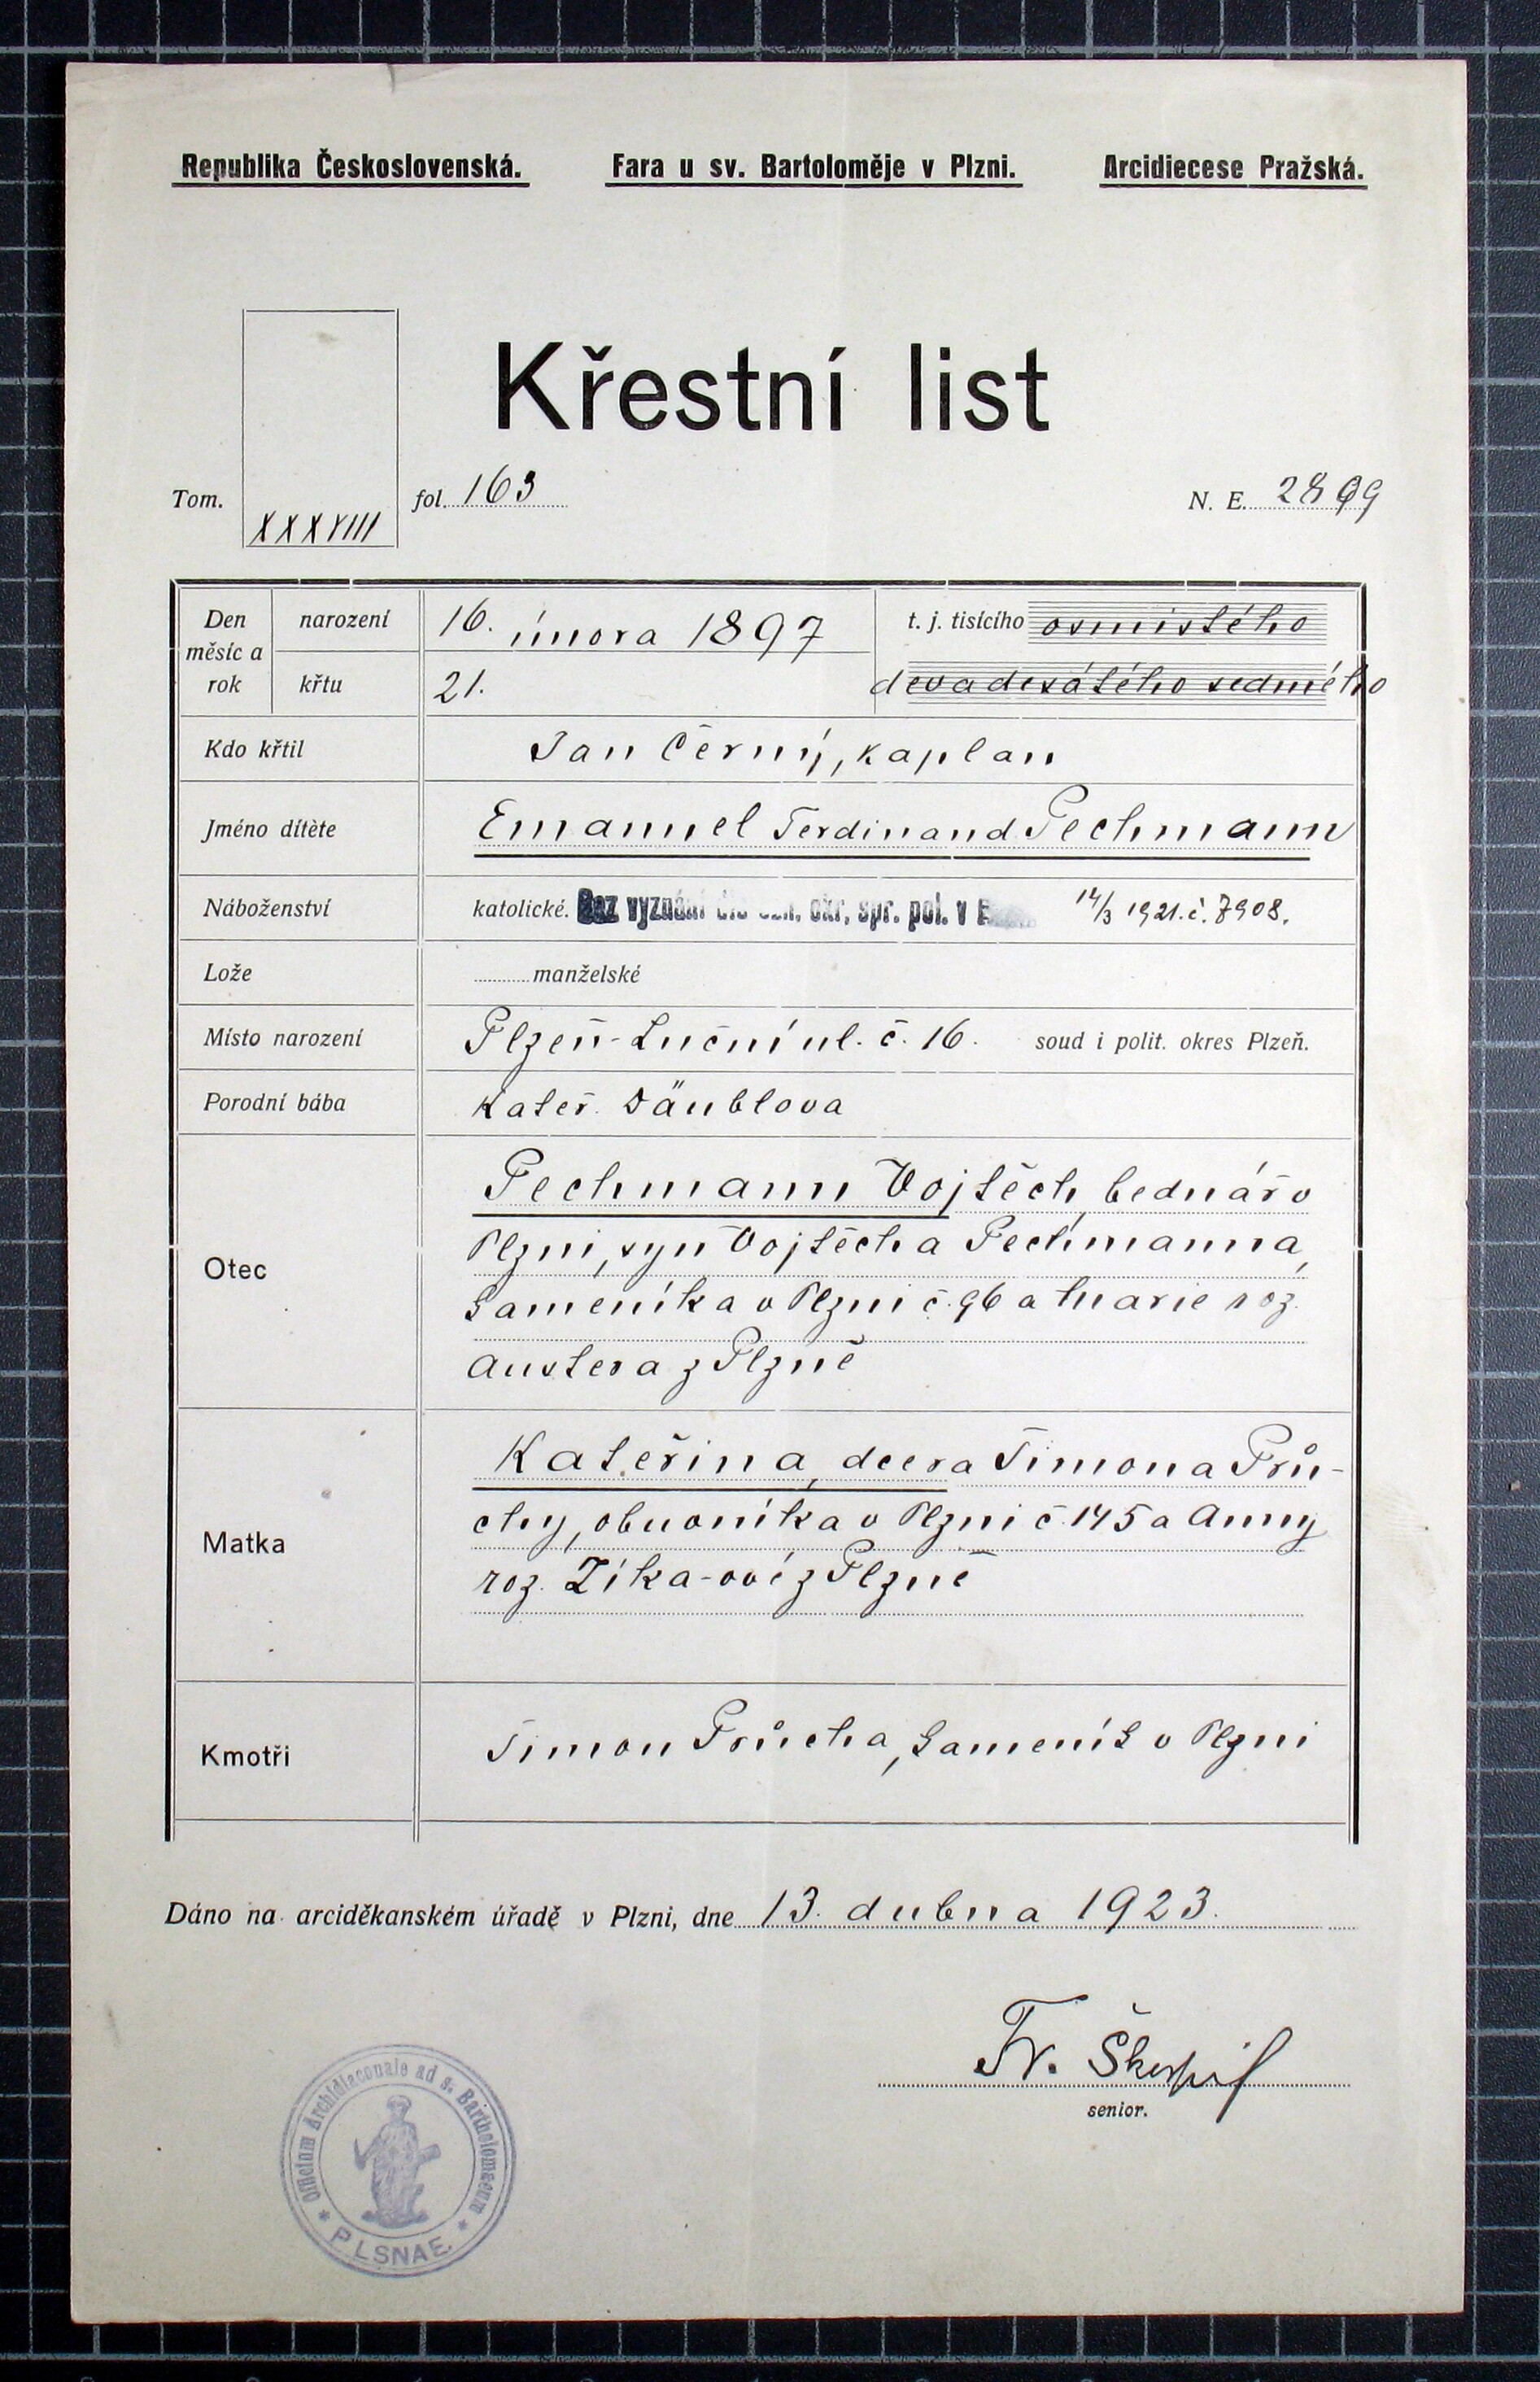 Republika Československá. Fara u sv. Bartoloměje v Plzni. Arcidiecese Pražská.
Křestní list
Tom. XXXVIII fol. 163 N. E. 2899
Den měsíc a rok narození 16. února 1897 t. j. tisícího osmistého
křtu 21. devadesátého sedmého
Kdo křtil Jan Černý, kaplan
Jméno dítěte Emanuel Ferdinand Pechmann
Náboženství katolické. Bez vyznání dle ozn. okr. spr. pol. v 14/3 1921. č. 7908.
Lože manželské
Místo narození Plzeň - Luční ul. č. 16. soud i polit. okres Plzeň.
Porodní bába Kateř. Däublova
Otec
Pechmann Vojtěch, bednář v
Plzni, syn Vojtěcha Pechmanna,
kameníka v Plzni č. 96 a Marie roz.
Austera z Plzně
Matka
Kateřina, dcera Šimona Prů-
chy, obuvníka v Plzni č 145 a Anny
roz. Zíka-ové z Plzně
Kmotři Šimon Průcha, kameník v Plzni
Dáno na arciděkanském úřadě v Plzni, dne 13. dubna 1923.
Fr. Škorpil
senior.
Officium Archidiaconale ad s. Bartholomaeum
* PLSNAE *